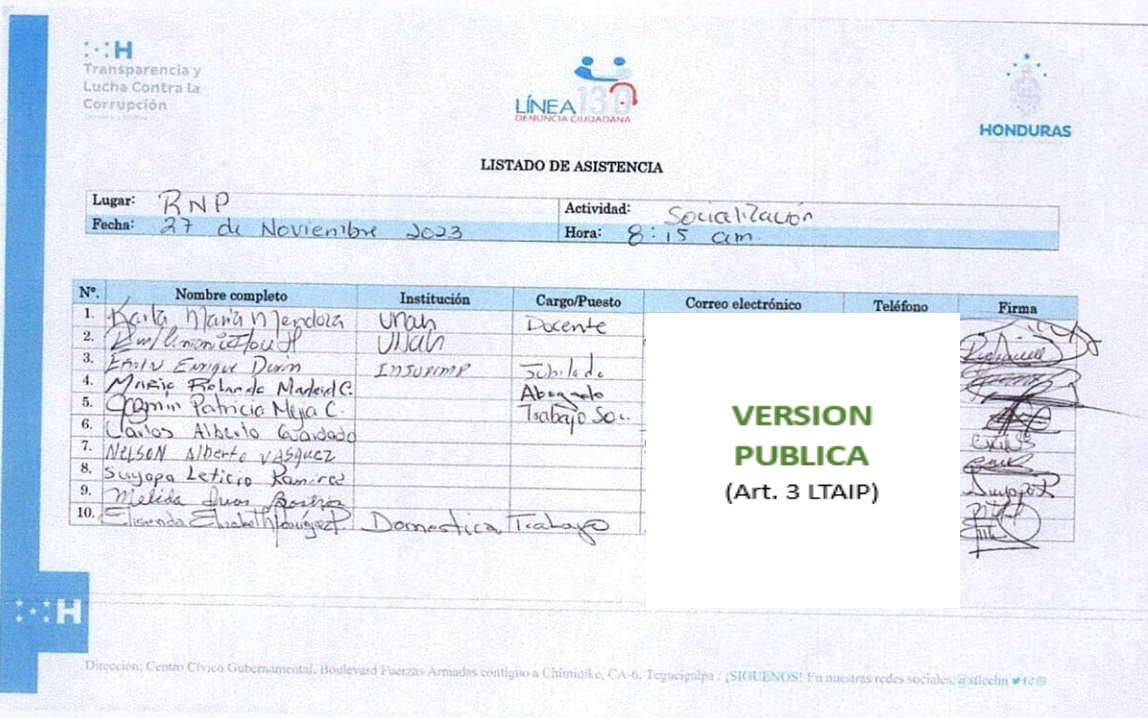 H
Transparencia y
Lucha Contra la
Corrupción
LÍNEA 130
DENUNCIA CIUDADANA
HONDURAS
LISTADO DE ASISTENCIA
Lugar: RNP Actividad: Socialización
Fecha: 27 de Noviembre 2023 Hora: 8:15 am.
Nº. Nombre completo Institución Cargo/Puesto Correo electrónico Teléfono Firma
1. Karla Maria Mendoza Unah Docente
2. Unah
3. Enrique Durón Jubilado
4. Mario Rolando Madrid C. Abogado
5. Patricia Mejia C. Trabajo Soc.
6. Carlos Alberto Guardado
7. NELSON Alberto VASQUEZ
8. Suyapa Leticia Ramirez
9. Melida
10. Elizabeth Domestica Trabajo
VERSION
PUBLICA
(Art. 3 LTAIP)
H
Dirección: Centro Cívico Gubernamental, Boulevard Fuerzas Armadas contiguo a Chiminike, CA-6, Tegucigalpa / ¡SIGUENOS! En nuestras redes sociales: @stlcchn